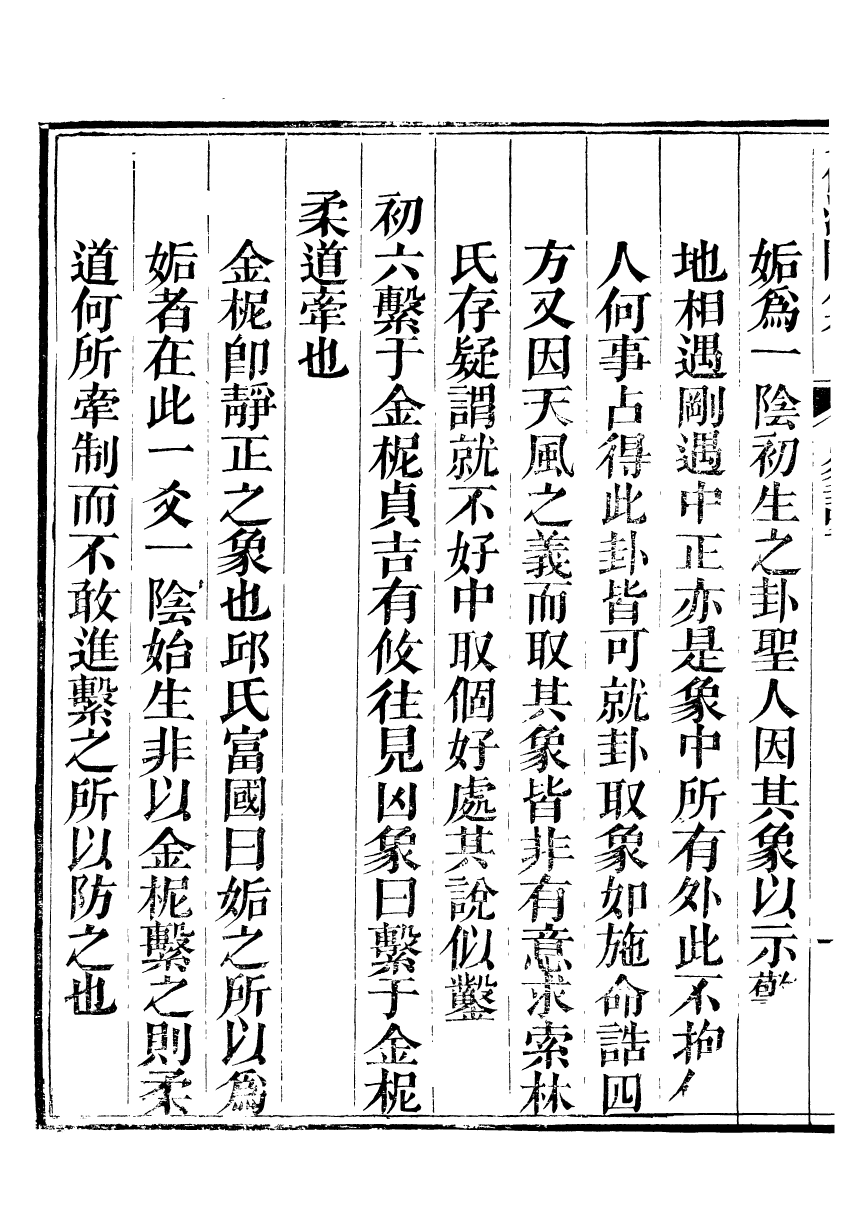 姤爲一陰初生之卦聖人因其象以示
地相遇剛遇中正亦是象中所有外此不拘
人何事占得此卦皆可就卦取象如施命誥四
方又因天風之義而取其象皆非有意求索林
氏存疑謂就不好中取個好處其說似鑿
初六繫于金柅貞吉有攸往見凶象曰繫于金柅
柔道牽也
金柅卽靜正之象也邱氏富國曰姤之所以爲
姤者在此一爻一陰始生非以金柅繫之則柔
道何所牽制而不敢進繫之所以防之也